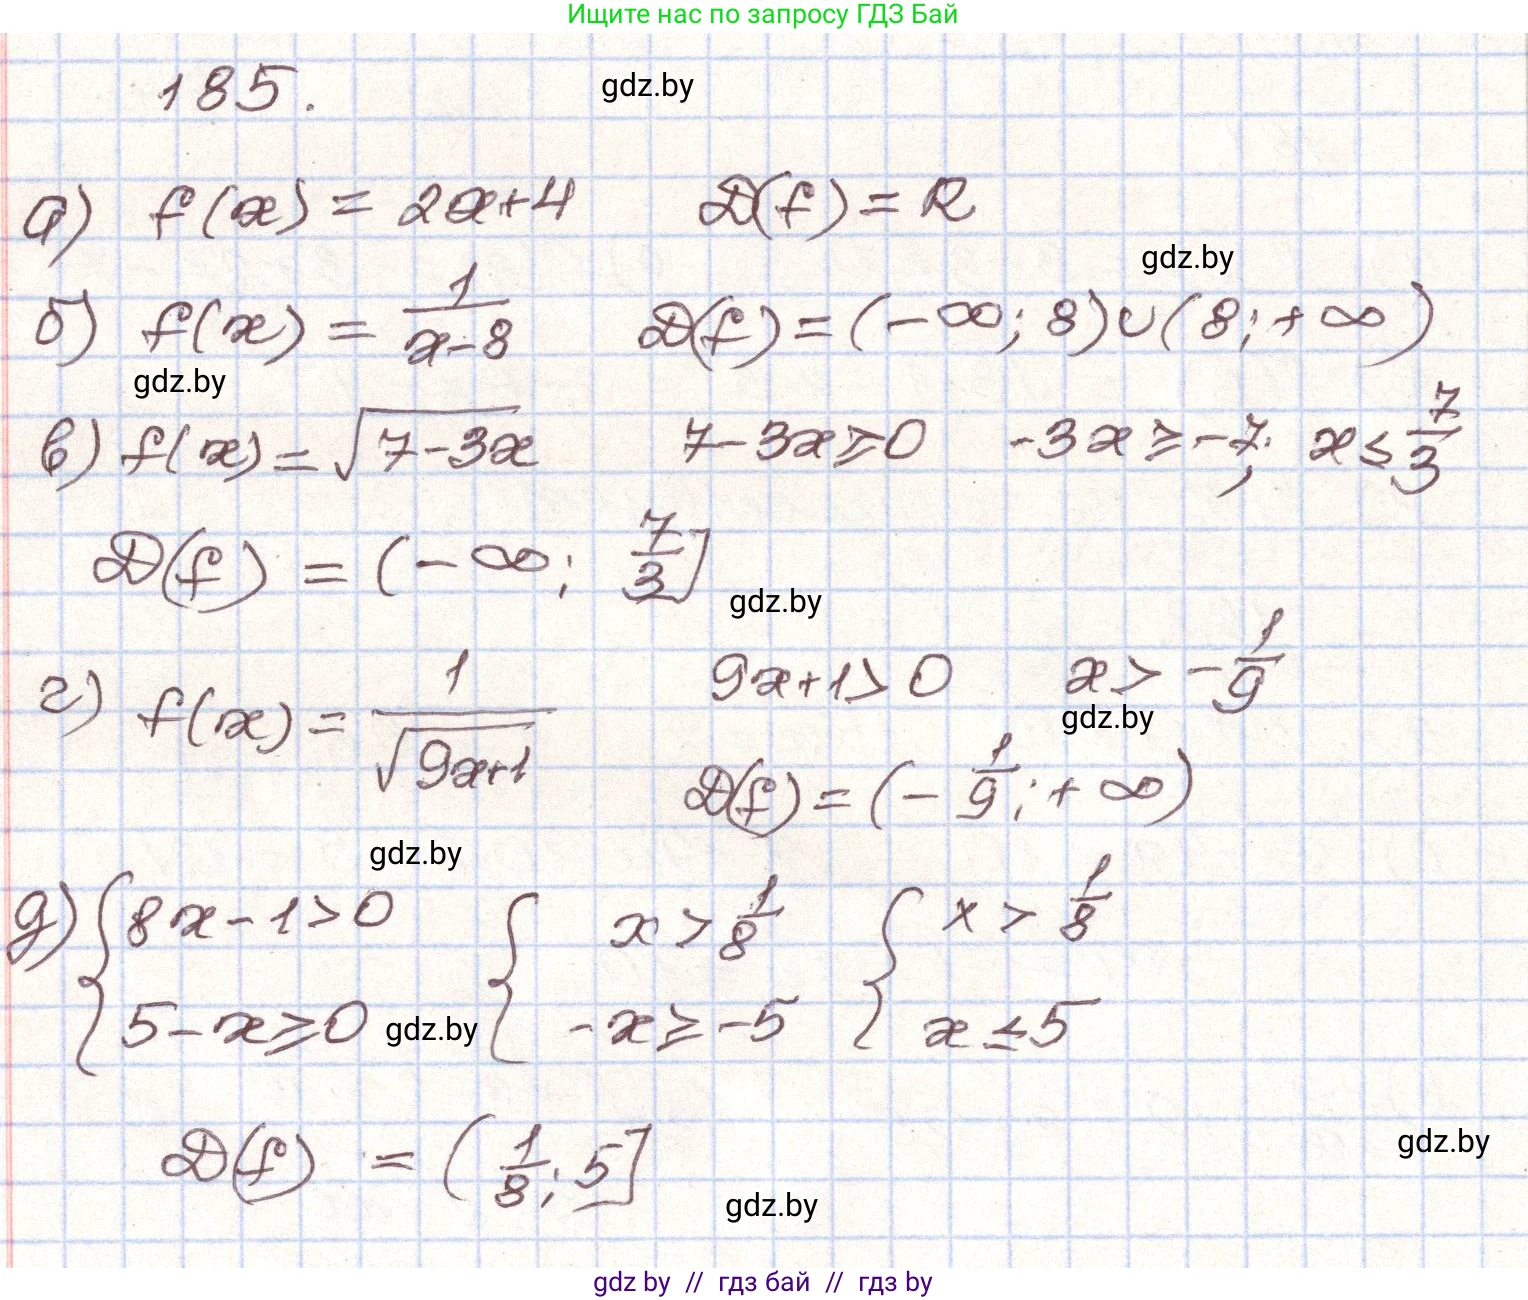 Ищите нас по запросу ГДЗ Бай
185. gdz.by
а) f(x) = 2x+4 D(f) = R
gdz.by
б) f(x) = 1/(x-8) D(f) = (-∞; 8)∪(8; +∞)
gdz.by
в) f(x) = √(7-3x) 7-3x≥0 -3x≥-7; x≤7/3
D(f) = (-∞; 7/3]
gdz.by
г) f(x) = 1/√(9x+1) 9x+1>0 x>-1/9
gdz.by
D(f) = (-1/9; +∞)
gdz.by
д) { 8x-1>0 { x>1/8 { x>1/8
5-x≥0 gdz.by -x≥-5 x≤5
D(f) = (1/8; 5]
gdz.by
gdz.by
gdz by // гдз бай // гдз by